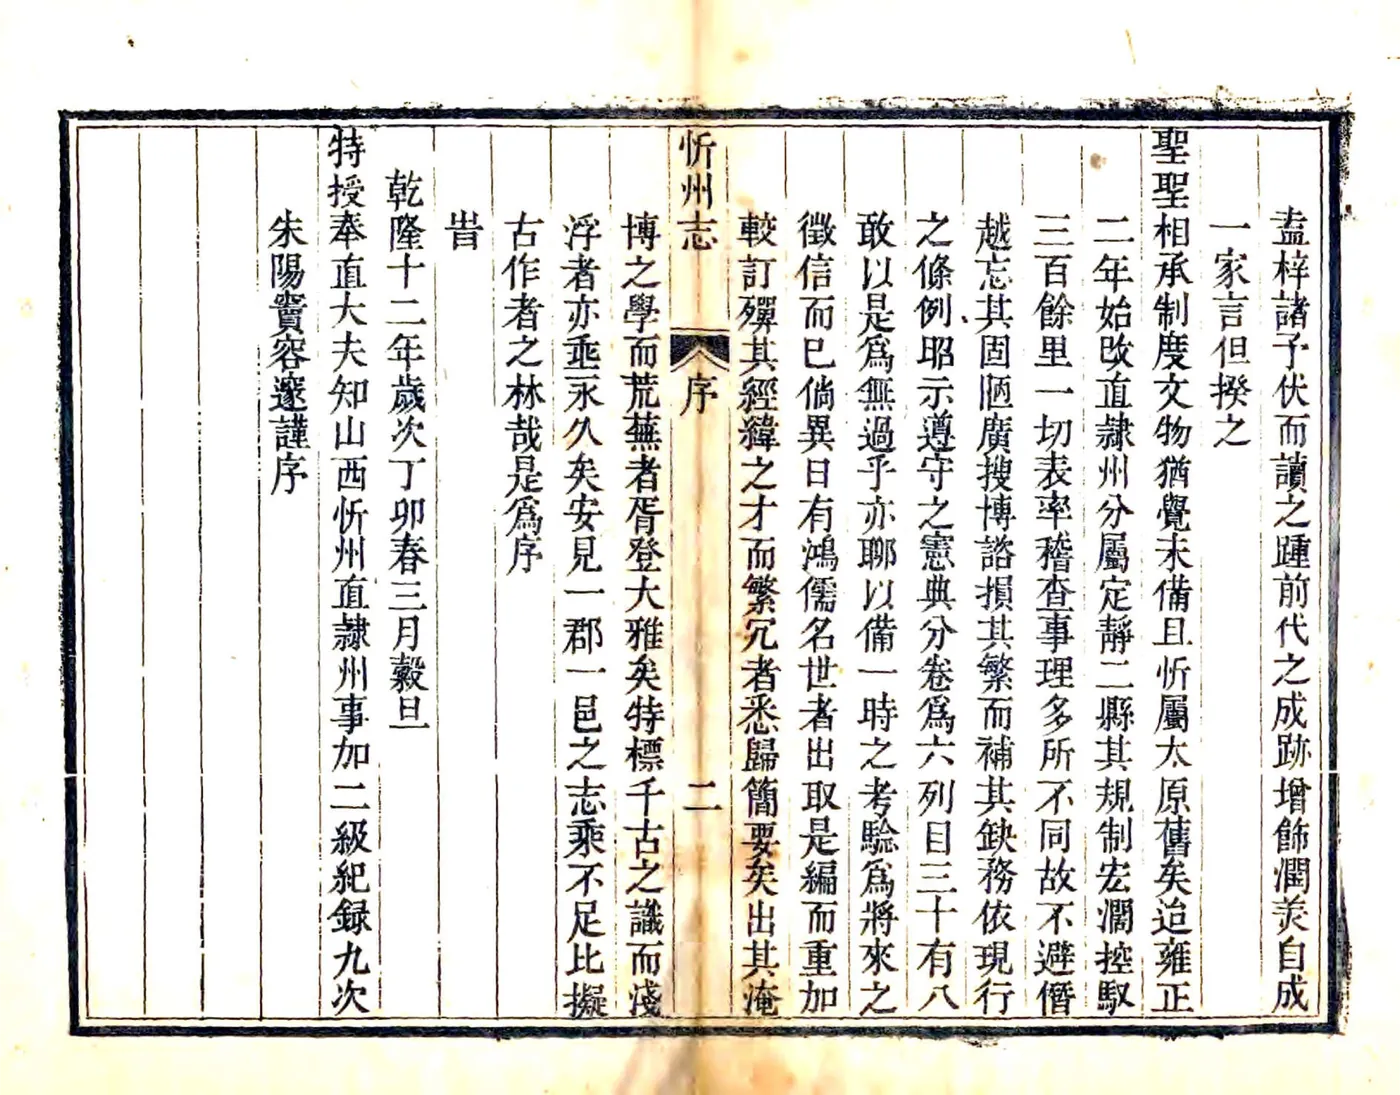 盍梓諸予伏而讀之踵前代之成跡增飾潤羙自成
一家言但揆之
聖聖相承制度文物猶覺未備且忻屬太原舊矣迨雍正
二年始改直隷州分屬定靜二縣其規制宏濶控馭
三百餘里一切表率稽查事理多所不同故不避僭
越忘其固陋廣搜博諮損其繁而補其缺務依現行
之條例昭示遵守之憲典分卷爲六列目三十有八
敢以是爲無過乎亦聊以備一時之考驗爲將來之
徵信而已倘異日有鴻儒名世者出取是編而重加
較訂殫其經緯之才而繁冗者悉歸簡要矣出其淹
忻州志
序
二
博之學而荒蕪者胥登大雅矣特標千古之識而淺
浮者亦埀永久矣安見一郡一邑之志乘不足比擬
古作者之林哉是爲序
旹
乾隆十二年歲次丁卯春三月穀旦
特授奉直大夫知山西忻州直隷州事加二級紀録九次
朱陽竇容邃謹序